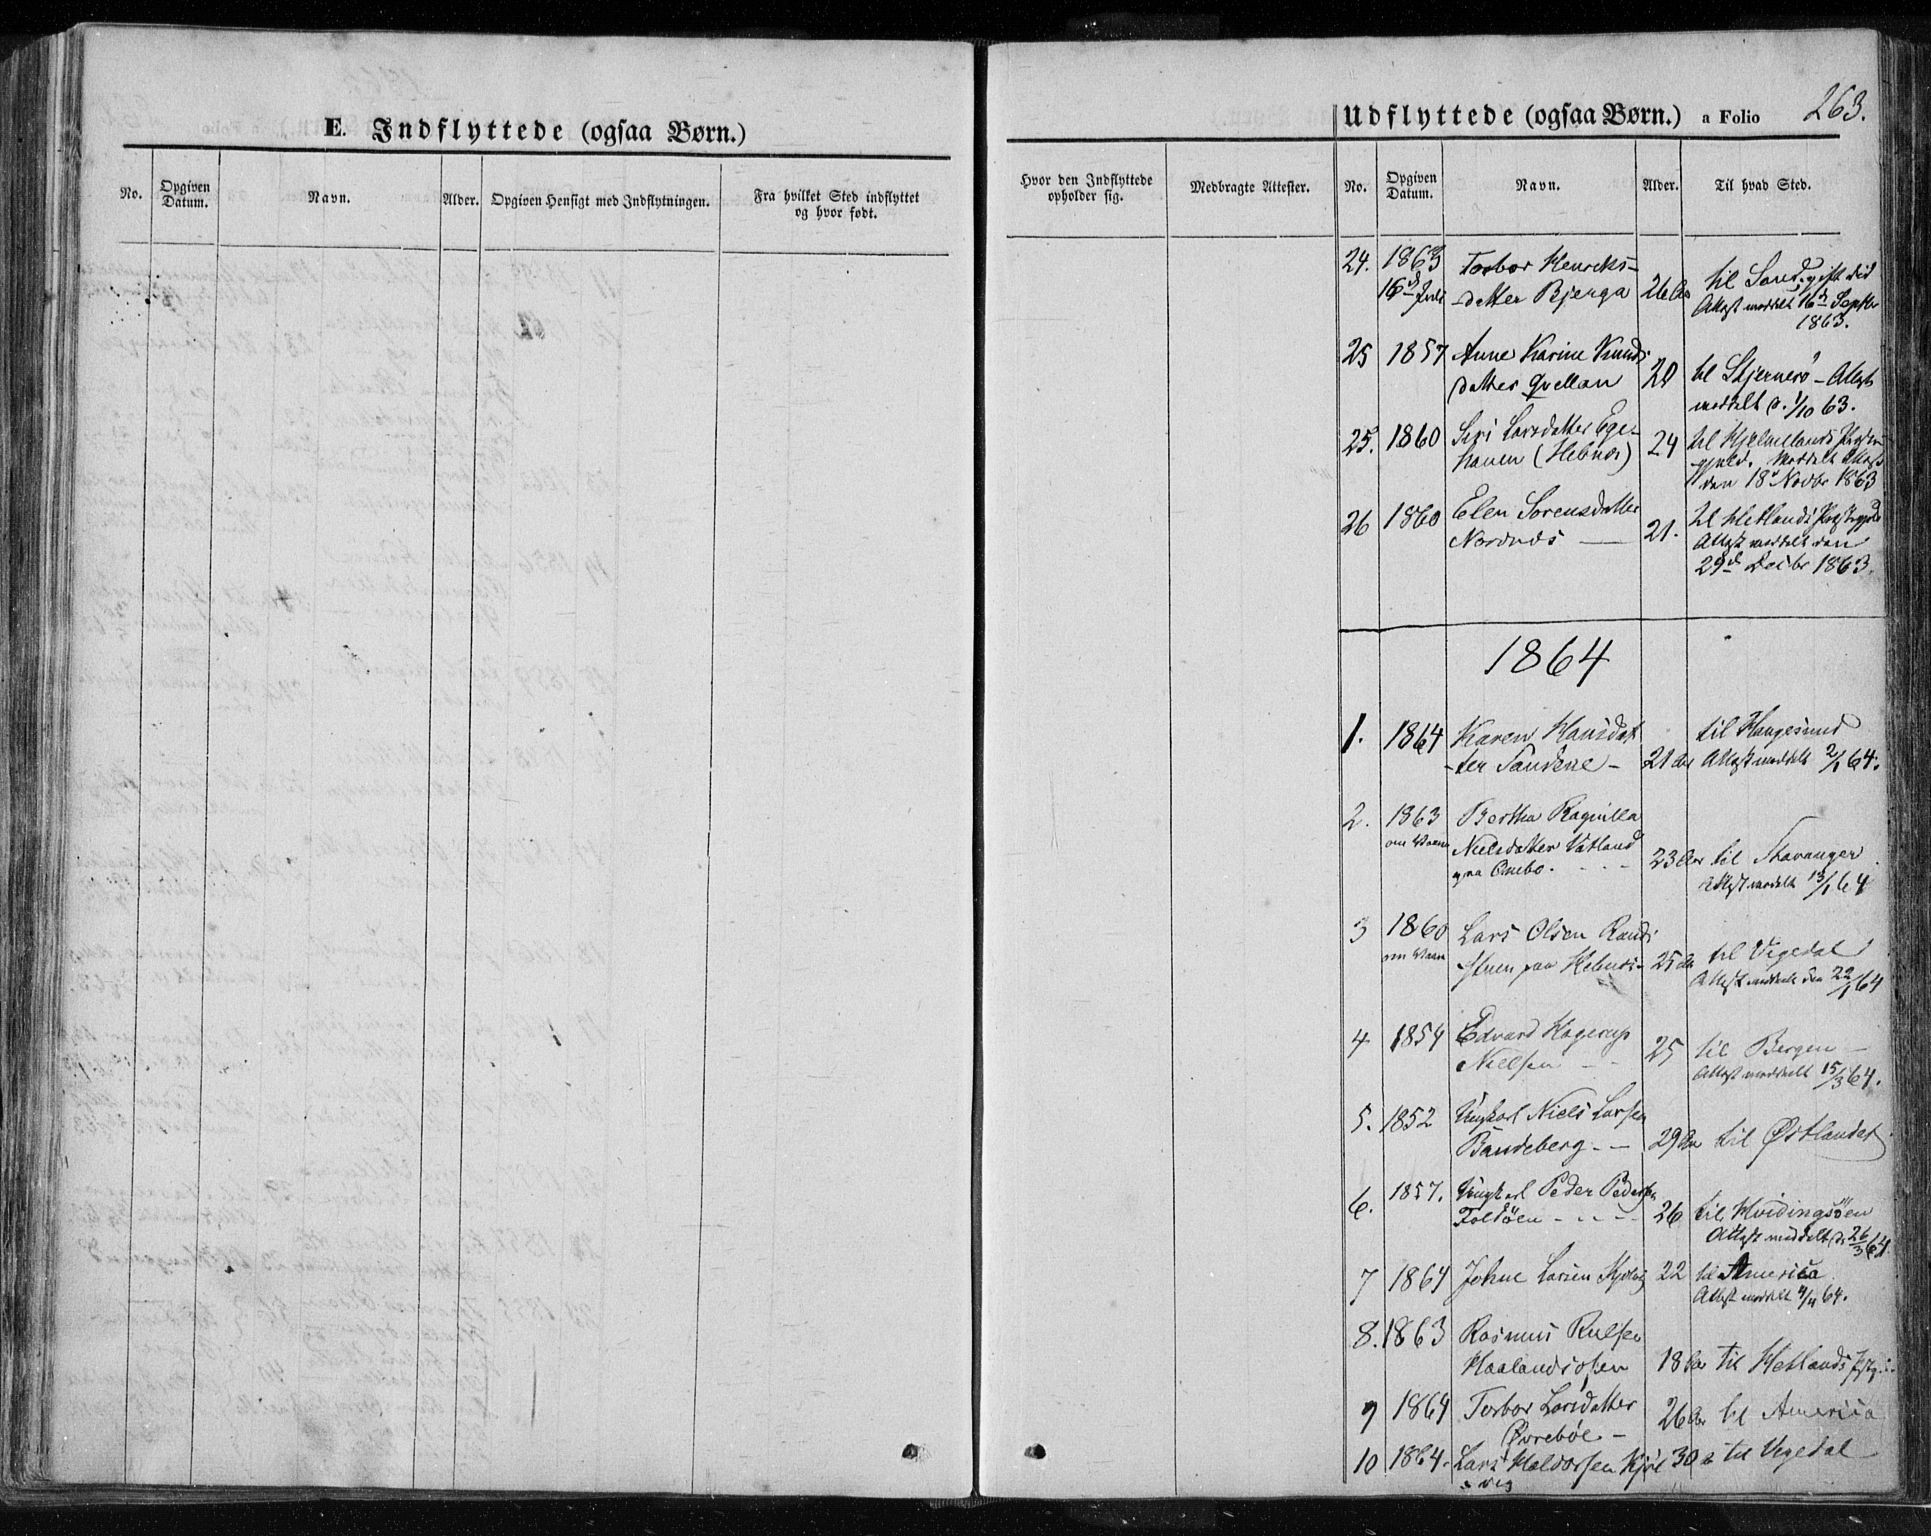 E. Indflyttede (ogsaa Børn.)
No.
Opgiven
Datum.
Navn.
Alder.
Opgiven Hensigt med Indflytningen.
Fra hvilket Sted indflyttet
og hvor født.
Udflyttede (ogsaa Børn.) a Folio 263.
Hvor den Indflyttede
opholder sig.
Medbragte Attester.
No.
Opgiven
Datum.
Navn.
Alder.
Til hvad Sted.
24. 1863 Torbor Henriks-
16d Juli -datter Bjerga 26 Aar til Sand, gift did
Attest meddelt 16d Septbr
1863.
25 1857 Anne Karine Knuds
datter Qvellan 20 til Stjernerö - Attest
meddelt d. 1/10 63.
25. 1860 Siri Larsdatter Ege-
hauen (Hebnes) 24 til Hjelmelands Præste-
gjeld. Meddelt Attest
den 18d Novbr 1863
26 1860 Elen Sorensdatter
Nordnes 21. til Hetlands Præstegjeld
Attest meddelt den
29d Decbr 1863.
1864
1. 1864 Karen Hansdat
-ter Sandene - 21 Aar til Haugesund
Attest meddelt 2/1 64.
2. 1863 Bertha Ragnilla
om Vaaren Nielsdatter Vatland
paa Ombo. 23 Aar til Stavanger
Attest meddelt 13/1 64
3 1860 Lars Olsen Rand
om Vaaren stuen paa Hebnes - 25 Aar til Vigedal
Attest meddelt den 22/1 64
4 1854 Edvard Hagerup
Nielsen 25 til Bergen -
Attest meddelt 15/3 64.
5. 1852 Ungkarl Niels Larsen
Bandeberg - - 29 Aar til Østlandet
6. 1857. Ungkarl Peder Pedersen
Foldöen - 26 til Hvidingsöen
Attest meddelt d. 26/3 64.
7 1864 Johne Larsen Kjølvig 22 til America
Attest meddelt 4/4 64.
8. 1863 Rasmus
Haalandsosen 18 Aar til Hetlands Pstg.
9 1864 Torbor Larsdatter
Øvrebøe - 26 Aar til America
10 1864. Lars Haldorsen Kjøl 30 a til Vigedal
- vig